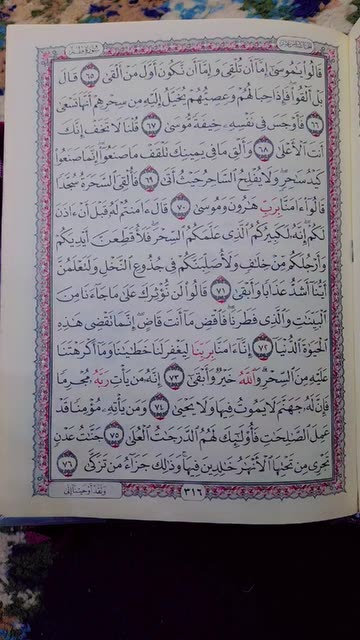 الجزء السادس عشر سورة طه
قَالُوا۟ يَـٰمُوسَىٰٓ إِمَّآ أَن تُلْقِىَ وَإِمَّآ أَن نَّكُونَ أَوَّلَ مَنْ أَلْقَىٰ ٦٥ قَالَ
بَلْ أَلْقُوا۟ فَإِذَا حِبَالُهُمْ وَعِصِيُّهُمْ يُخَيَّلُ إِلَيْهِ مِن سِحْرِهِمْ أَنَّهَا تَسْعَىٰ
٦٦ فَأَوْجَسَ فِى نَفْسِهِۦ خِيفَةً مُّوسَىٰ ٦٧ قُلْنَا لَا تَخَفْ إِنَّكَ
أَنتَ ٱلْأَعْلَىٰ ٦٨ وَأَلْقِ مَا فِى يَمِينِكَ تَلْقَفْ مَا صَنَعُوٓا۟ إِنَّمَا صَنَعُوا۟
كَيْدُ سَـٰحِرٍ وَلَا يُفْلِحُ ٱلسَّاحِرُ حَيْثُ أَتَىٰ ٦٩ فَأُلْقِىَ ٱلسَّحَرَةُ سُجَّدًا
قَالُوٓا۟ ءَامَنَّا بِرَبِّ هَـٰرُونَ وَمُوسَىٰ ٧٠ قَالَ ءَامَنتُمْ لَهُۥ قَبْلَ أَنْ ءَاذَنَ
لَكُمْ إِنَّهُۥ لَكَبِيرُكُمُ ٱلَّذِى عَلَّمَكُمُ ٱلسِّحْرَ فَلَأُقَطِّعَنَّ أَيْدِيَكُمْ
وَأَرْجُلَكُم مِّنْ خِلَـٰفٍ وَلَأُصَلِّبَنَّكُمْ فِى جُذُوعِ ٱلنَّخْلِ وَلَتَعْلَمُنَّ
أَيُّنَآ أَشَدُّ عَذَابًا وَأَبْقَىٰ ٧١ قَالُوا۟ لَن نُّؤْثِرَكَ عَلَىٰ مَا جَآءَنَا مِنَ
ٱلْبَيِّنَـٰتِ وَٱلَّذِى فَطَرَنَا فَٱقْضِ مَآ أَنتَ قَاضٍ إِنَّمَا تَقْضِى هَـٰذِهِ
ٱلْحَيَوٰةَ ٱلدُّنْيَآ ٧٢ إِنَّآ ءَامَنَّا بِرَبِّنَا لِيَغْفِرَ لَنَا خَطَـٰيَـٰنَا وَمَآ أَكْرَهْتَنَا
عَلَيْهِ مِنَ ٱلسِّحْرِ وَٱللَّهُ خَيْرٌ وَأَبْقَىٰٓ ٧٣ إِنَّهُۥ مَن يَأْتِ رَبَّهُۥ مُجْرِمًا
فَإِنَّ لَهُۥ جَهَنَّمَ لَا يَمُوتُ فِيهَا وَلَا يَحْيَىٰ ٧٤ وَمَن يَأْتِهِۦ مُؤْمِنًا قَدْ
عَمِلَ ٱلصَّـٰلِحَـٰتِ فَأُو۟لَـٰٓئِكَ لَهُمُ ٱلدَّرَجَـٰتُ ٱلْعُلَىٰ ٧٥ جَنَّـٰتُ عَدْنٍ
تَجْرِى مِن تَحْتِهَا ٱلْأَنْهَـٰرُ خَـٰلِدِينَ فِيهَا وَذَٰلِكَ جَزَآءُ مَن تَزَكَّىٰ ٧٦
٣١٦ ولقد أوحينا إلى